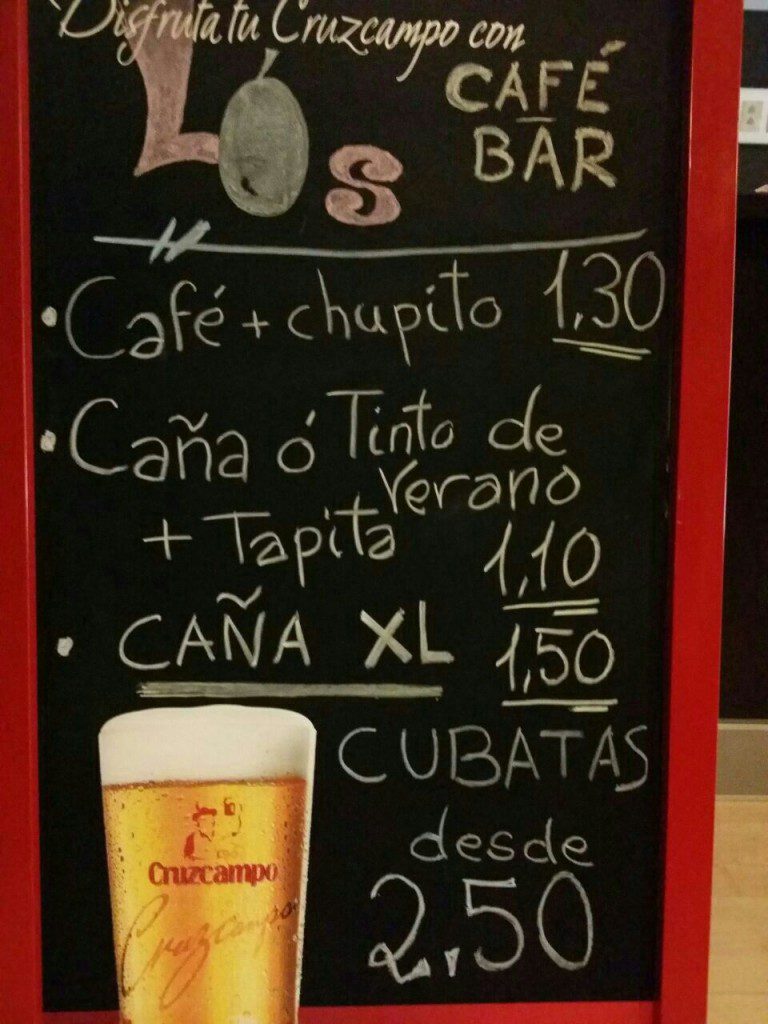 Disfruta tu Cruzcampo con
LOS
CAFÉ
BAR
• Café + chupito 1,30
• Caña ó Tinto de
Verano
+ Tapita
1,10
• CAÑA XL 1,50
CUBATAS
desde
2,50
Cruzcampo
Cruzcampo